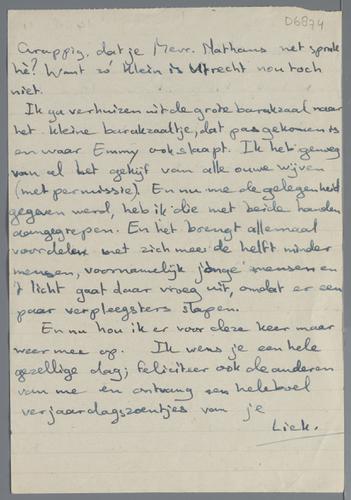 D6874
Grappig, dat je Mevr. Nathans net sprak
hè? Want zó klein is Utrecht nou toch
niet.
Ik ga verhuizen uit de grote barakzaal naar
het kleine barakzaaltje, dat pas gekomen is
en waar Emmy ook slaapt. Ik heb genoeg
van al het gekijf van alle ouwe wijven
(met permissie). En nu me de gelegenheid
gegeven werd, heb ik die met beide handen
aangegrepen. En het brengt allemaal
voordelen met zich mee: de helft minder
mensen, voornamelijk jonge mensen en
't licht gaat daar vroeg uit, omdat er een
paar verpleegsters slapen.
En nu hou ik er voor deze keer maar
weer mee op. Ik wens je een hele
gezellige dag; feliciteer ook de anderen
van me en ontvang een heleboel
verjaardagszoentjes van je